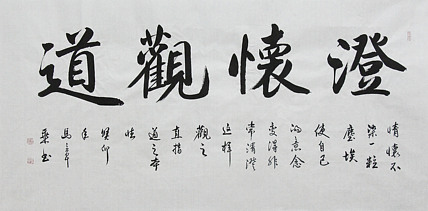 澄懷觀道
情懷不
染一粒
塵埃
使自己
的意念
变得非
常清澄
这样
觀之
直指
道之本